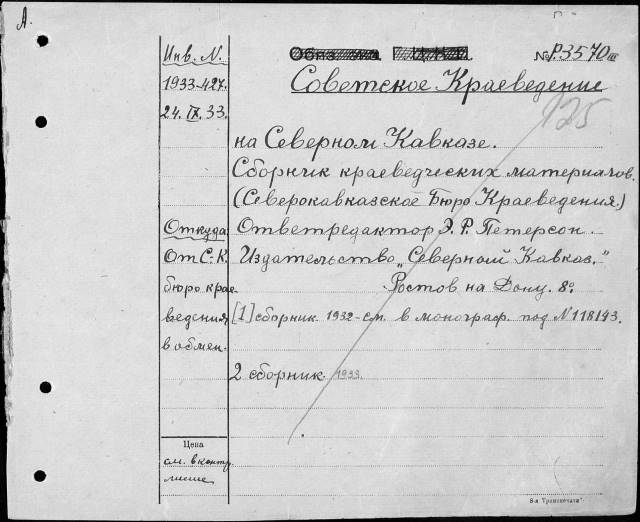 А.
Инв. N.
1933-427.
24. IX. 33.
№ Р.3570 III
Советское Краеведение
125
на Северном Кавказе.
Сборник краеведческих материалов.
(Северокавказское Бюро Краеведения.)
Откуда
Ответредактор Э. Р. Петерсон.
От С.-К. бюро крае-
ведения
в обмен.
Издательство „Северный Кавказ."
Ростов на Дону. 8º.
[1] сборник 1932 - см. в монограф. под N 118143.
2 сборник 1933.
Цена
см. в контр.
листе
8-я „Транспечати"